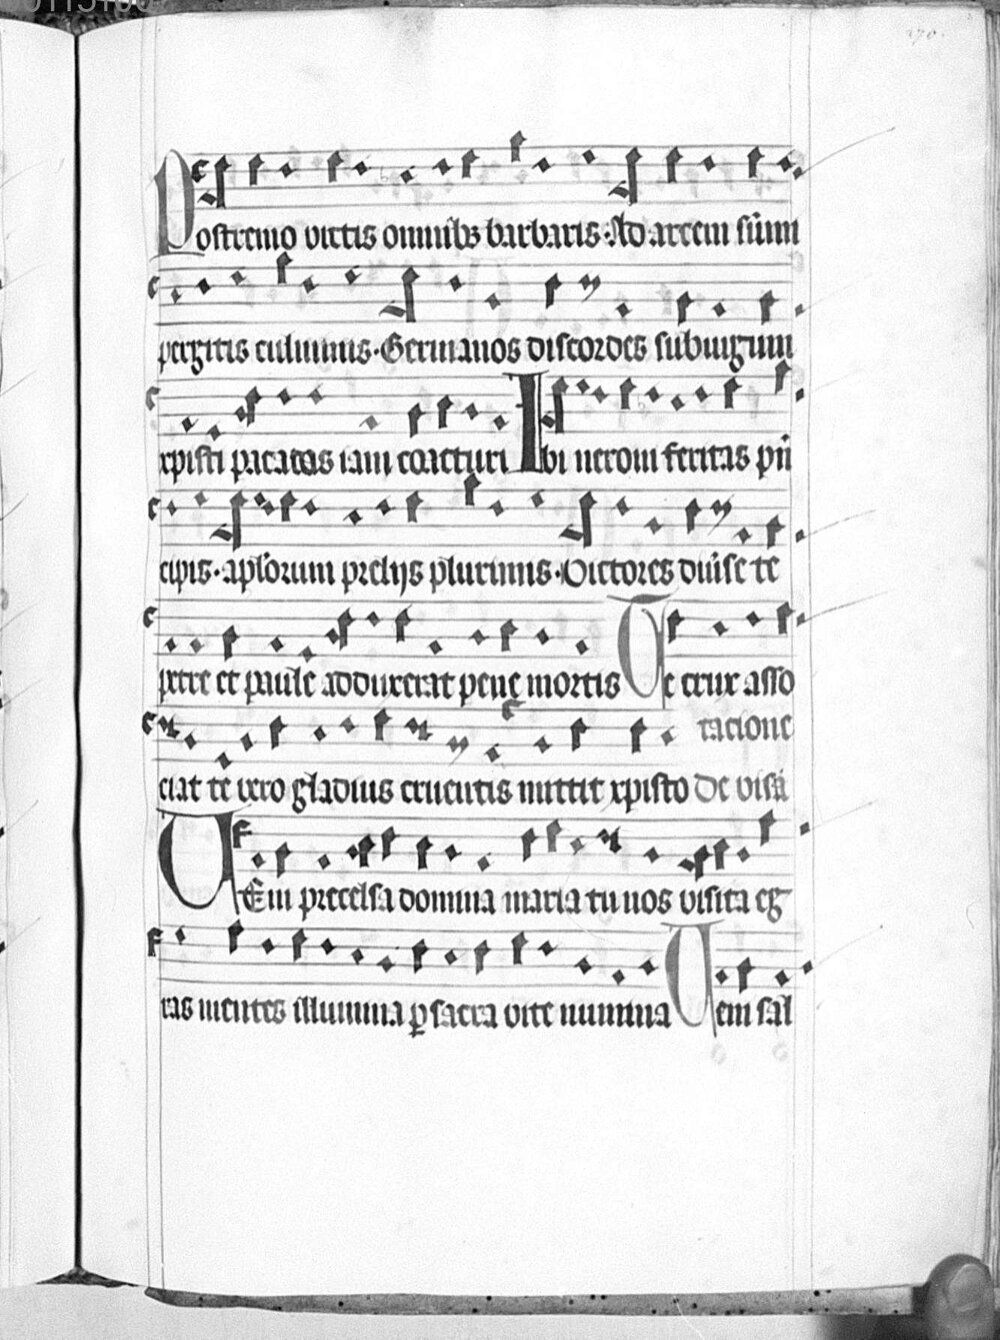 270.
Postremo victis omnibꝫ barbaris · Ad arcem sūmi
pergitis culminis · Germanos discordes sub iugum
xpisti pacatos iam coacturi Ibi neroni feritas pͥn
cipis · aplorum prelijs plurimis · Victores diūse te
petre et paule addixerat pene mortis Te crux asso
racione
ciat te vero gladius cruentis mittit xpisto De visi
tEm precelsa domina maria tu nos visita eg
ras mentes illumina ꝑ sacra vite numina Vem sal